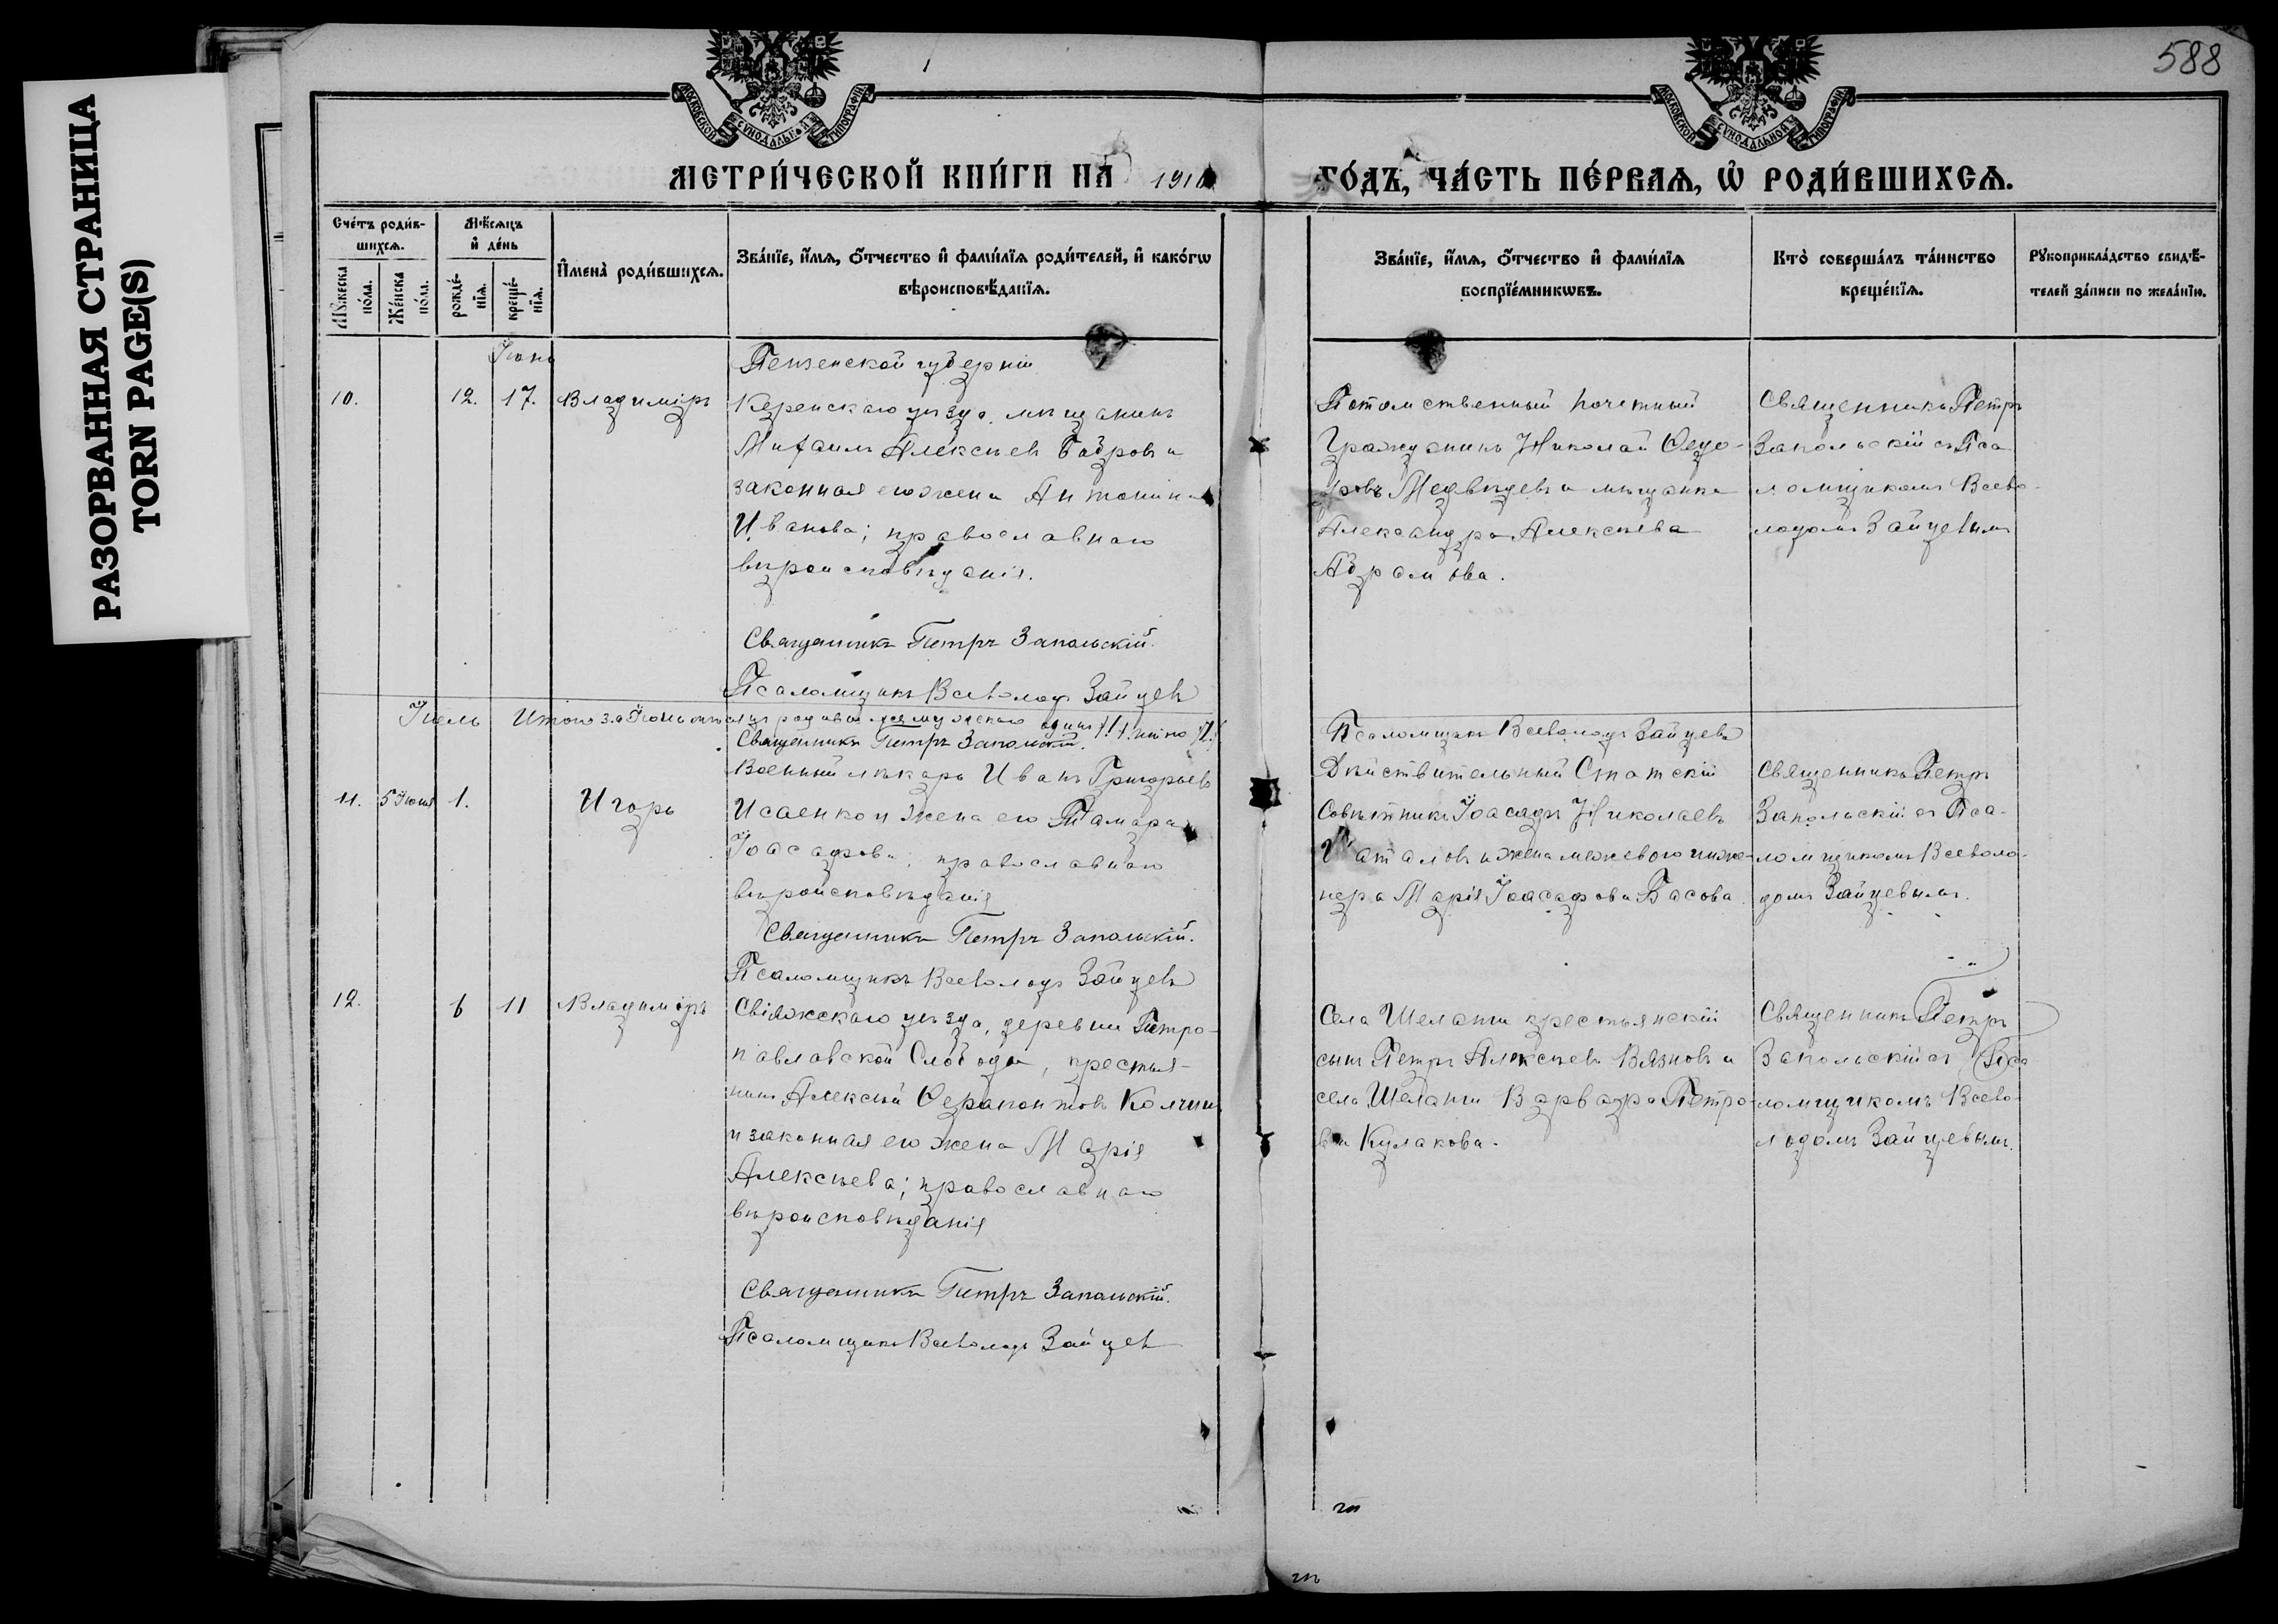 588
РАЗОРВАННАЯ СТРАНИЦА
TORN PAGE(S)
МОСКОВСКОЙ СУНОДАЛЬНОЙ ТИПОГРАФІИ
МОСКОВСКОЙ СУНОДАЛЬНОЙ ТИПОГРАФІИ
МЕТРИ́ЧЕСКОЙ КНИ́ГИ НА̀ 191
ГО́ДЪ, ЧА́СТЬ ПЕ́РВАѦ, Ѡ҆ РОДИ́ВШИХСѦ.
Сче́тъ роди́в-
шихсѧ.
Мѣ́сѧцъ
и҆ де́нь
Мꙋ́жеска
по́ла.
Же́нска
по́ла.
рожде́-
нїѧ.
креще́-
нїѧ.
И҆мена̀ роди́вшихсѧ.
Зва́нїе, и҆́мѧ, ѻ҆́тчество и҆ фами́лїѧ роди́телей, и҆ како́гѡ
вѣроисповѣ́данїѧ.
Зва́нїе, и҆́мѧ, ѻ҆́тчество и҆ фами́лїѧ
воспрїе́мникѡвъ.
Кто̀ соверша́лъ та́инство
креще́нїѧ.
Рꙋкоприкла́дство свидѣ́-
телей за́писи по жела́нїю.
Іюнь
10.
12.
17.
Владиміръ
Пензенской губерніи
Керенскаго уѣзда, мѣщанинъ
Михаилъ Алексѣевъ Бодровъ и
законная его жена Антонина
Иванова; православнаго
вѣроисповѣданія.
Священникъ Петръ Запольскій.
Псаломщикъ Всеволодъ Зайцевъ
Потомственный почетный
Гражданинъ Николай Ѳедо-
ровъ Медвѣдевъ и мѣщанка
Александра Алексѣева
Абрамова.
Священникъ Петръ
Запольскій съ Пса
ломщикомъ Всево-
лодомъ Зайцевымъ
Іюль
Итого за Іюнь мѣсяцъ родившихся мужскаго одинъ
Священникъ Петръ Запольскій.
Псаломщикъ Всеволодъ Зайцевъ
11.
5 Іюня
1.
Игорь
Военный лѣкарь Иванъ Григорьевъ
Исаенко и жена его Тамара
Іоасафова; православнаго
вѣроисповѣданія
Священникъ Петръ Запольскій.
Псаломщикъ Всеволодъ Зайцевъ
Дѣйствительный Статскій
Совѣтникъ Іоасафъ Николаевъ
и жена межевого инже-
нера Марія Іоасафова Басова
Священникъ Петръ
Запольскій съ Пса-
ломщикомъ Всеволо-
домъ Зайцевымъ.
12.
6
11
Владиміръ
Свіяжскаго уѣзда, деревни Петро-
павловской Слободы, крестья-
нинъ Алексѣй Ѳерапонтовъ Колчинъ
и законная его жена Марія
Алексѣева; православнаго
вѣроисповѣданія
Священникъ Петръ Запольскій.
Псаломщикъ Всеволодъ Зайцевъ
Села Шеланги крестьянскій
сынъ Петръ Алексѣевъ Вязновъ и
села Шеланги Варвара Петро-
ва Кулакова.
Священникъ Петръ
Запольскій съ Пса
ломщикомъ Всево-
лодомъ Зайцевымъ.